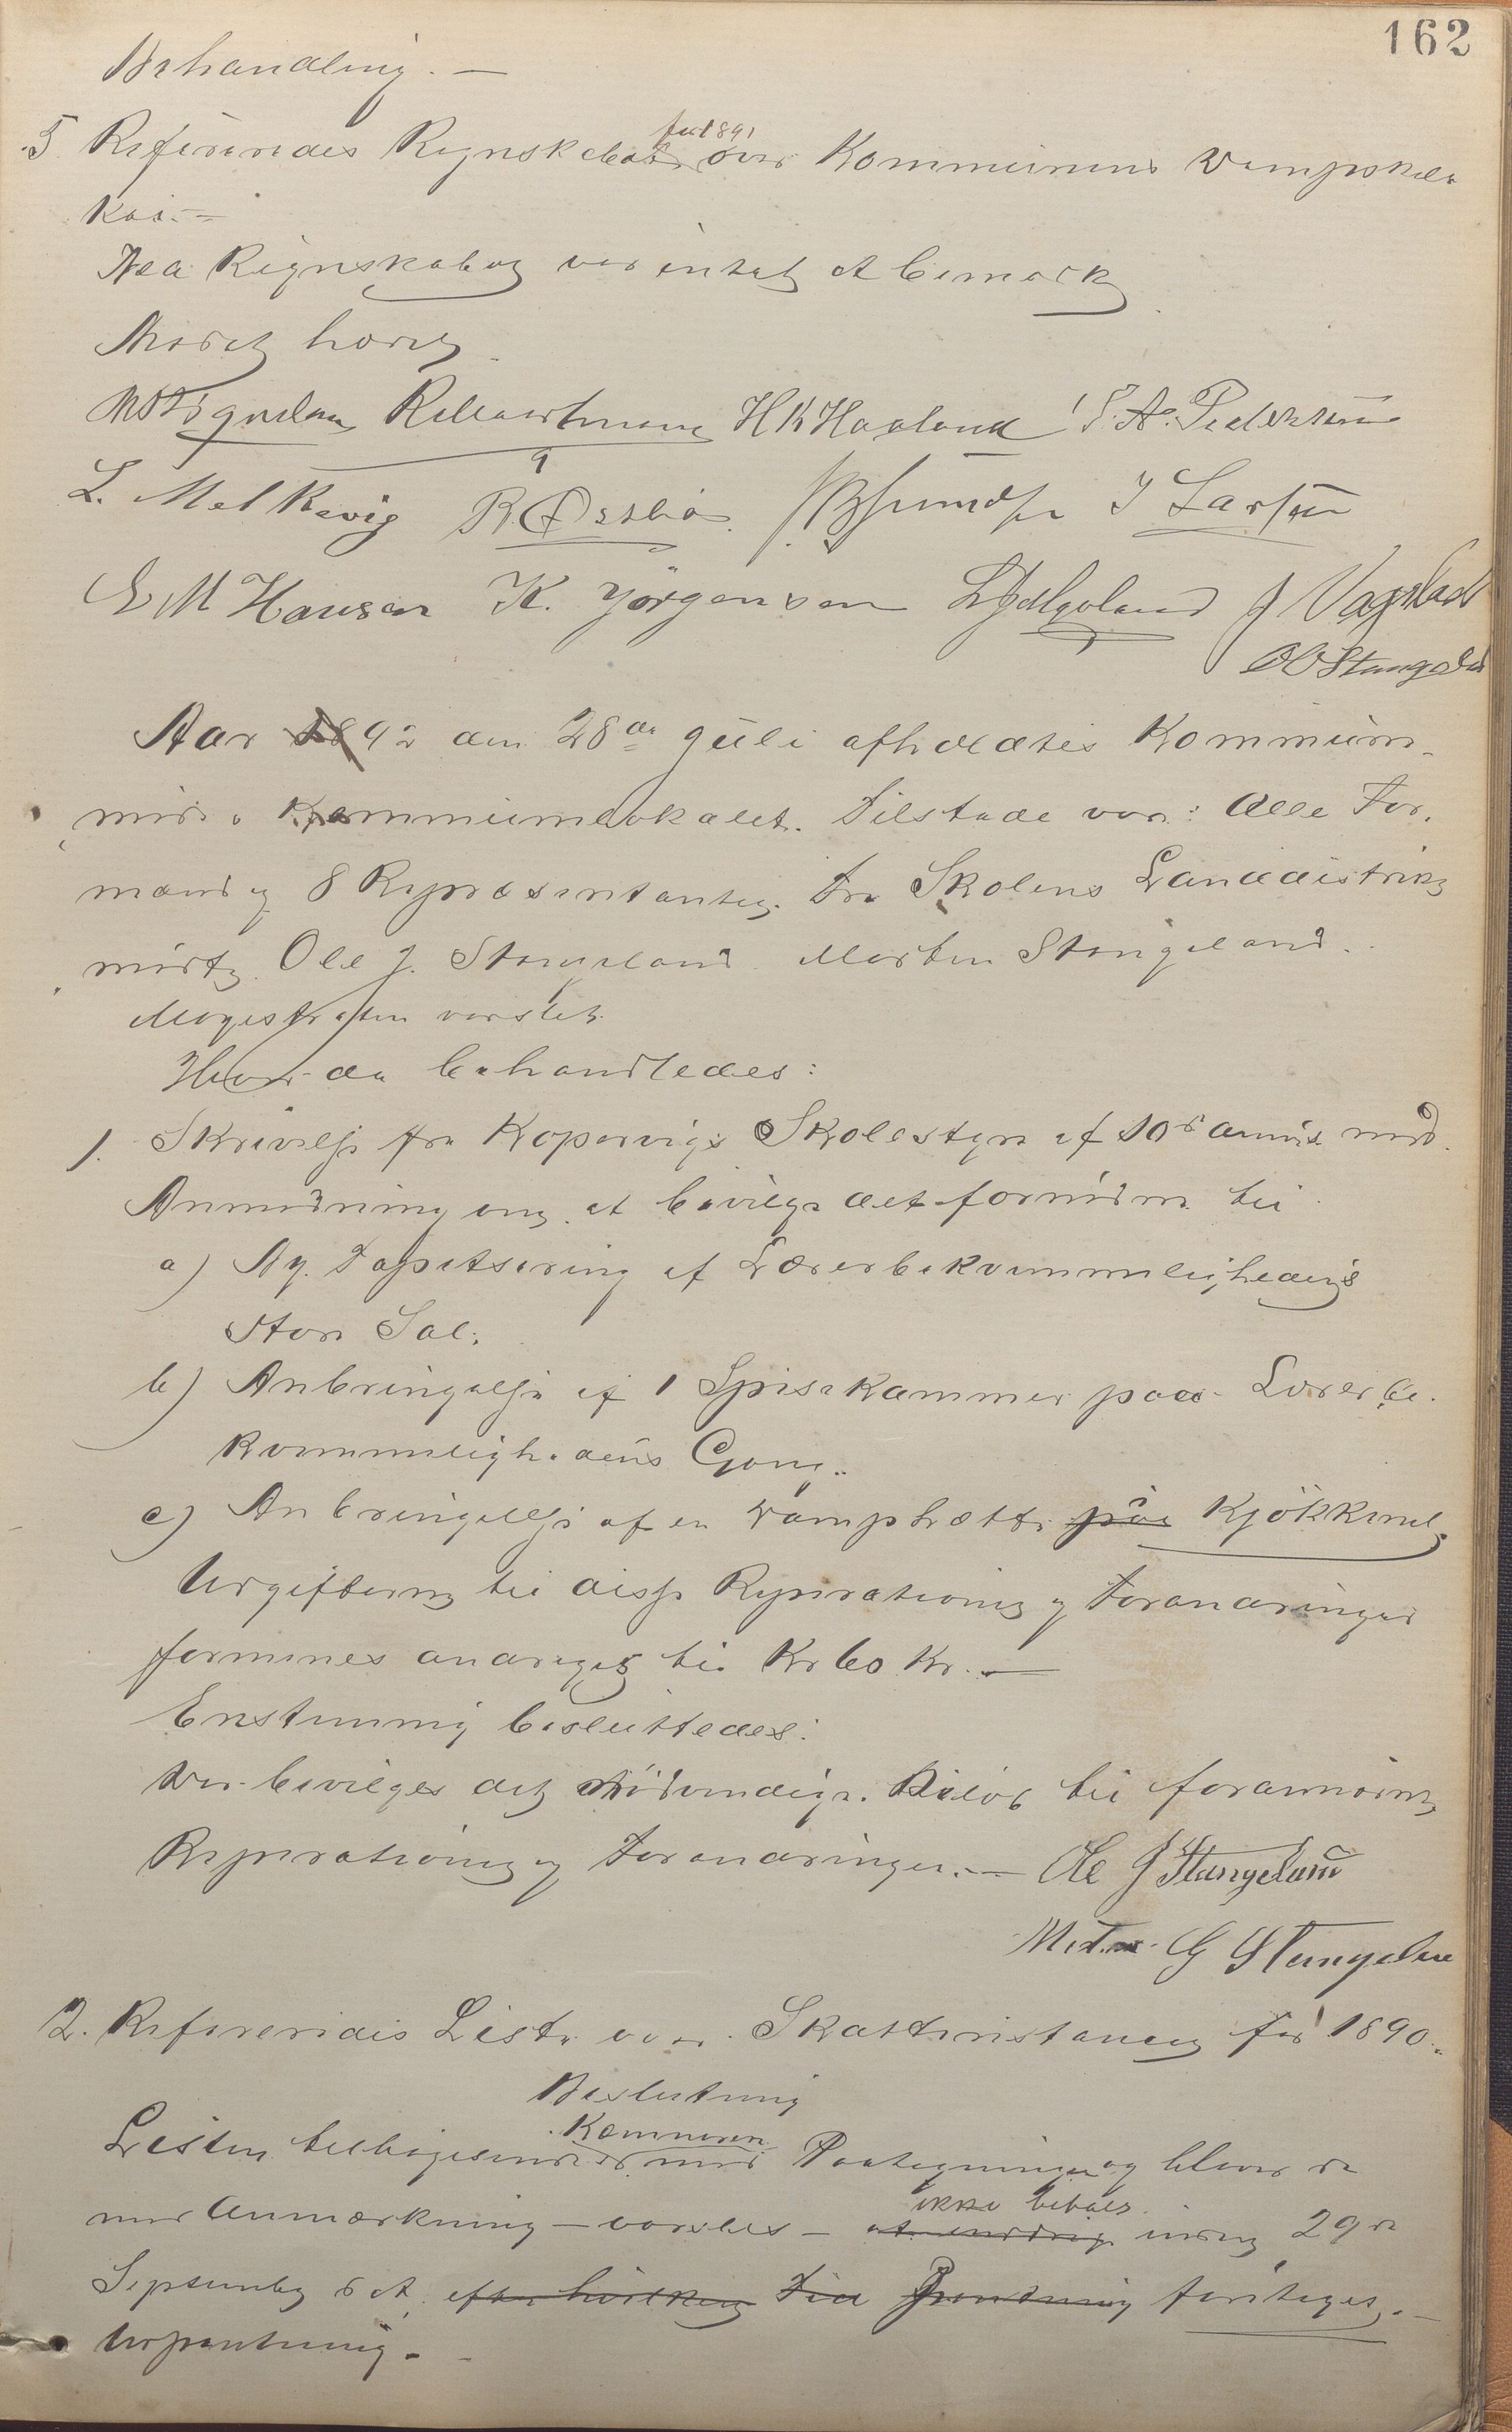 162
Behandling. —
5 Refereredes Regnskabet for 1891 over Kommunens Dampskibs
kai. —
Ved Regnskabet var intet at bemærke
Mødet hævet
H K Haaland S. A. Pedersen
L. Melkevig R. Øssbø J Larsen
E M Hansen K. Jörgensen L Helgeland J Vagstad
O Stangeland
Aar 1892 den 28de Juli afholdtes Kommune-
møde i Kommunelokalet. Tilstede var: Alle For-
mænd og 8 Repræsentanter. Fra Skolens Landdistrikt
mødte Ole J. Stangeland Morten Stangeland.
Magistraten varslet
Hvor da behandledes:
1. Skrivelse fra Kopervigs Skolestyre af 10de dennes med
Anmodning om at bevilge det fornødne til
a) Ny Tapetsering af Lærerbekvemmelighedens
store Sal.
b) Anbringelse af 1 Spisekammer paa Lærerbe-
kvemmelighedens Gang.
c) Anbringelse af en Damphætte paa i Kjökkenet
Udgifterne til disse Reparationer og Forandringer
formenes andrage til Kr 60 Kr. —
Enstemmig besluttedes:
Der bevilges det nödvendige Belöb til forannævnte
Reparationer og Forandringer. — Ole J Stangeland
G Stangeland
2. Refereredes Liste over Skatterestancer for 1890.
Beslutning
Listen tilbagesendes Kæmneren med Paategning og bliver de
med Anmærkning — varsles — ikke betales inden 29de
September d. A. efter hvilken Tid Pantning foretages. —
Udpantning. —